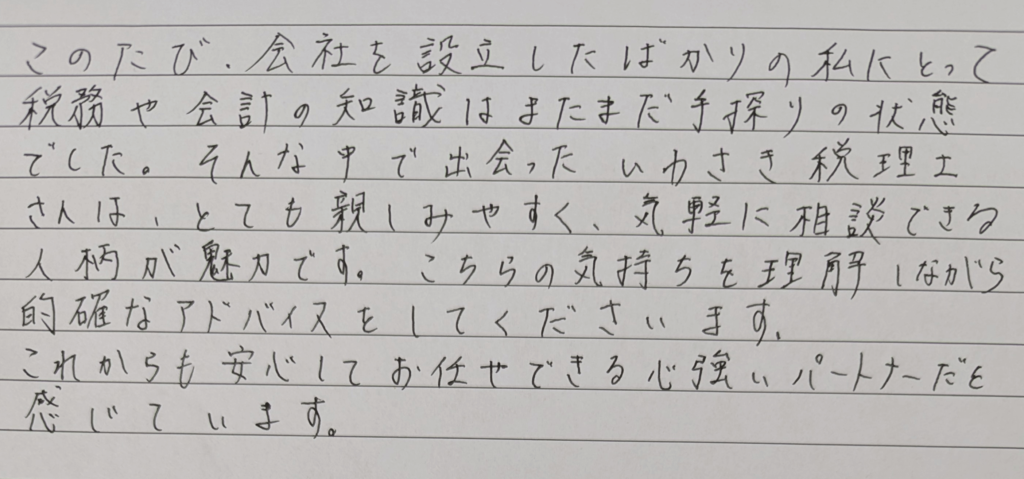 このたび、会社を設立したばかりの私にとって
税務や会計の知識はまたまだ手探りの状態
でした。そんな中で出会ったいわさき税理士
さんは、とても親しみやすく、気軽に相談できる
人柄が魅力です。こちらの気持ちを理解しながら
的確なアドバイスをしてくださいます。
これからも安心してお任せできる心強いパートナーだと
感じています。